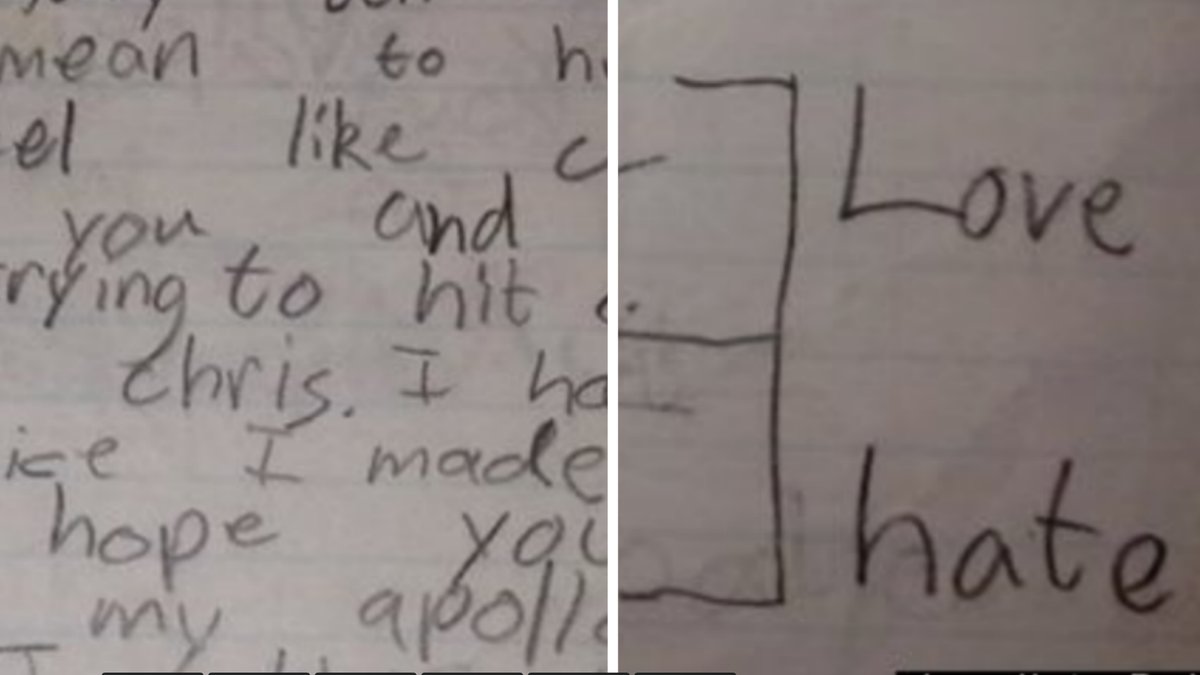 mean to
el like
you and
rying to hit
Chris. I
ice I made
hope you
my apoll
Love
hate